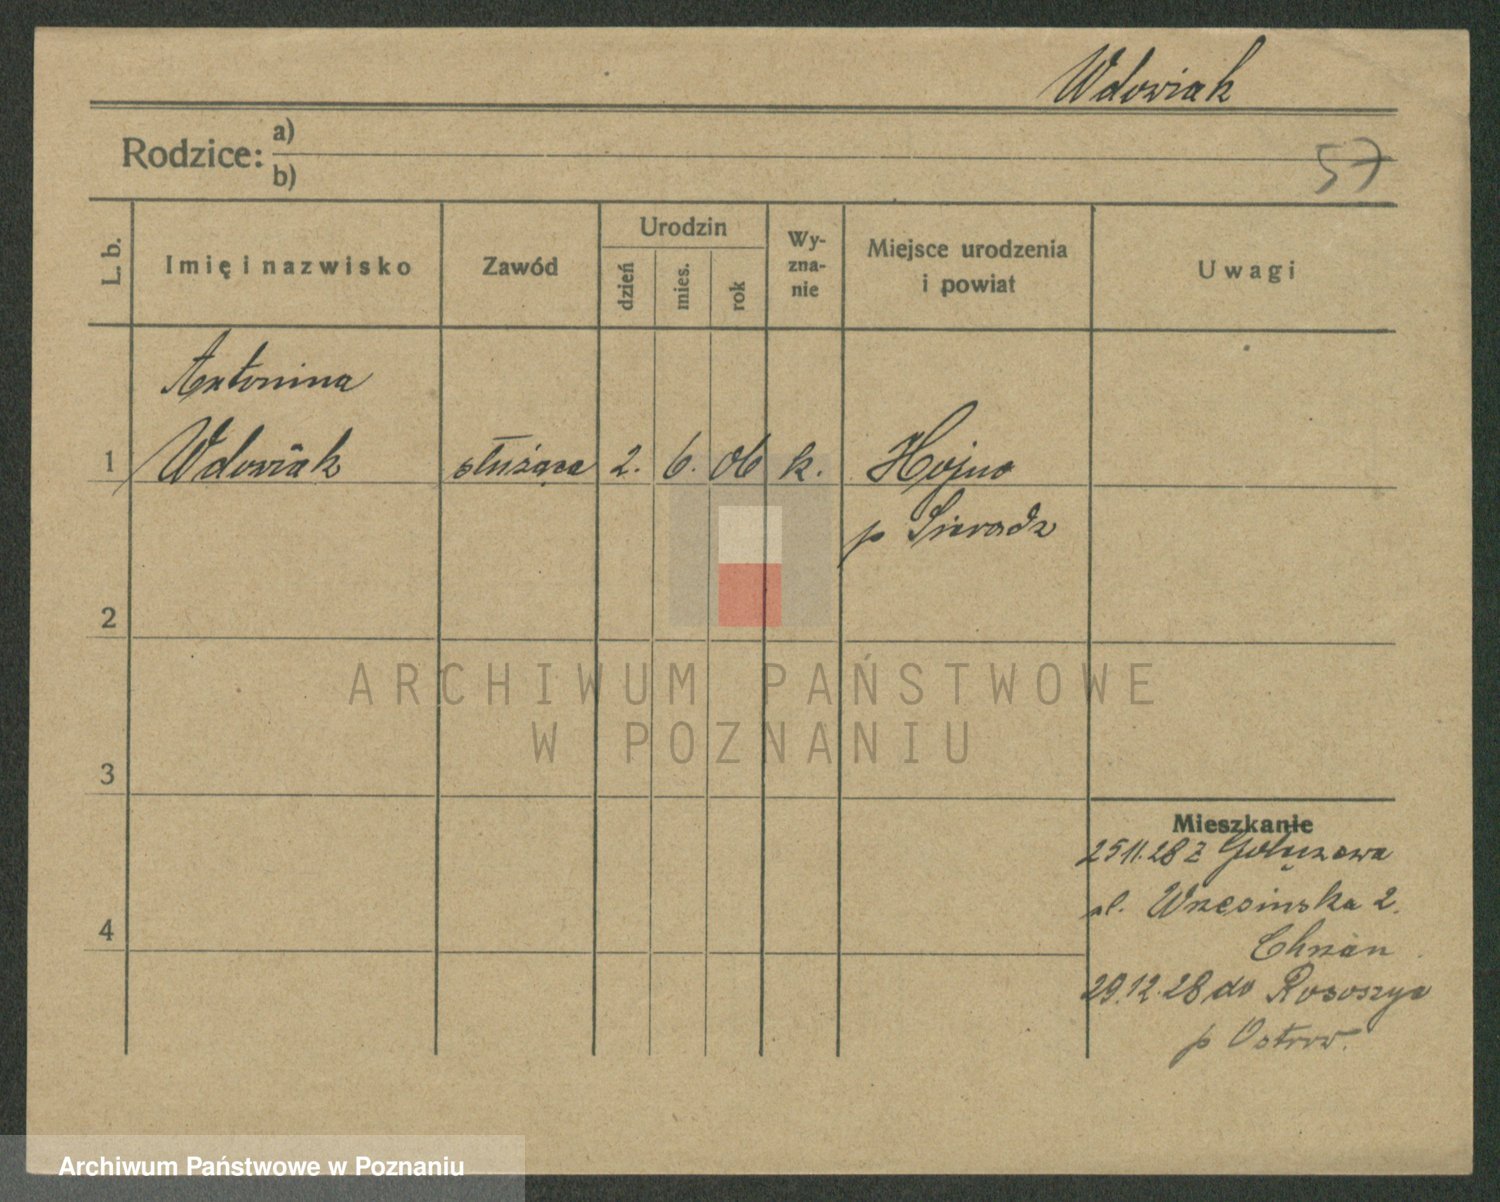 Wdowiak
Rodzice: a)
b)
57
L. b.
Imię i nazwisko
Zawód
Urodzin
dzień
mies.
rok
Wy-
zna-
nie
Miejsce urodzenia
i powiat
Uwagi
Antonina
1 Wdowiak służąca 2. 6. 06 k. Hojno
p Sieradz
2
3
4
Mieszkanie
25 11.28 z
ul. Wrzesińska 2.
Chrzan
29.12.28 do Rososzyc
p Ostrow.
ARCHIWUM PAŃSTWOWE
W POZNANIU
Archiwum Państwowe w Poznaniu